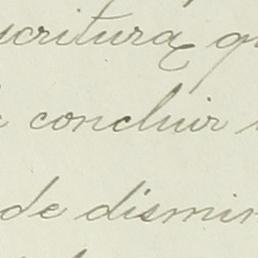 scritura q
concluir
de dismin